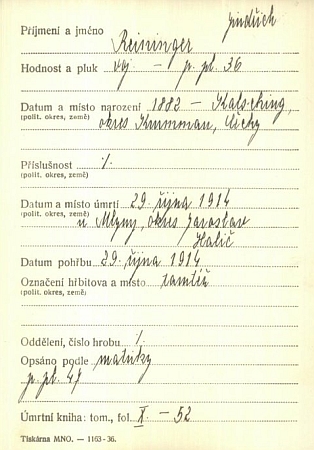 Jindřich
Příjmení a jméno Reininger
Hodnost a pluk voj. — p. pl. 36
Datum a místo narození 1882 — Kalsching,
(polit. okres, země) okres Krummau, Čechy
Příslušnost ·/.
(polit. okres, země)
Datum a místo úmrtí 29. října 1914
(polit. okres, země) u Mlyny, okres Jaroslav
Halič
Datum pohřbu 29. října 1914
Označení hřbitova a místo tamtéž
(polit. okres, země)
Oddělení, číslo hrobu ·/.
Opsáno podle matriky
p. pl. 47
Úmrtní kniha: tom., fol. X. — 52
Tiskárna MNO. — 1163-36.